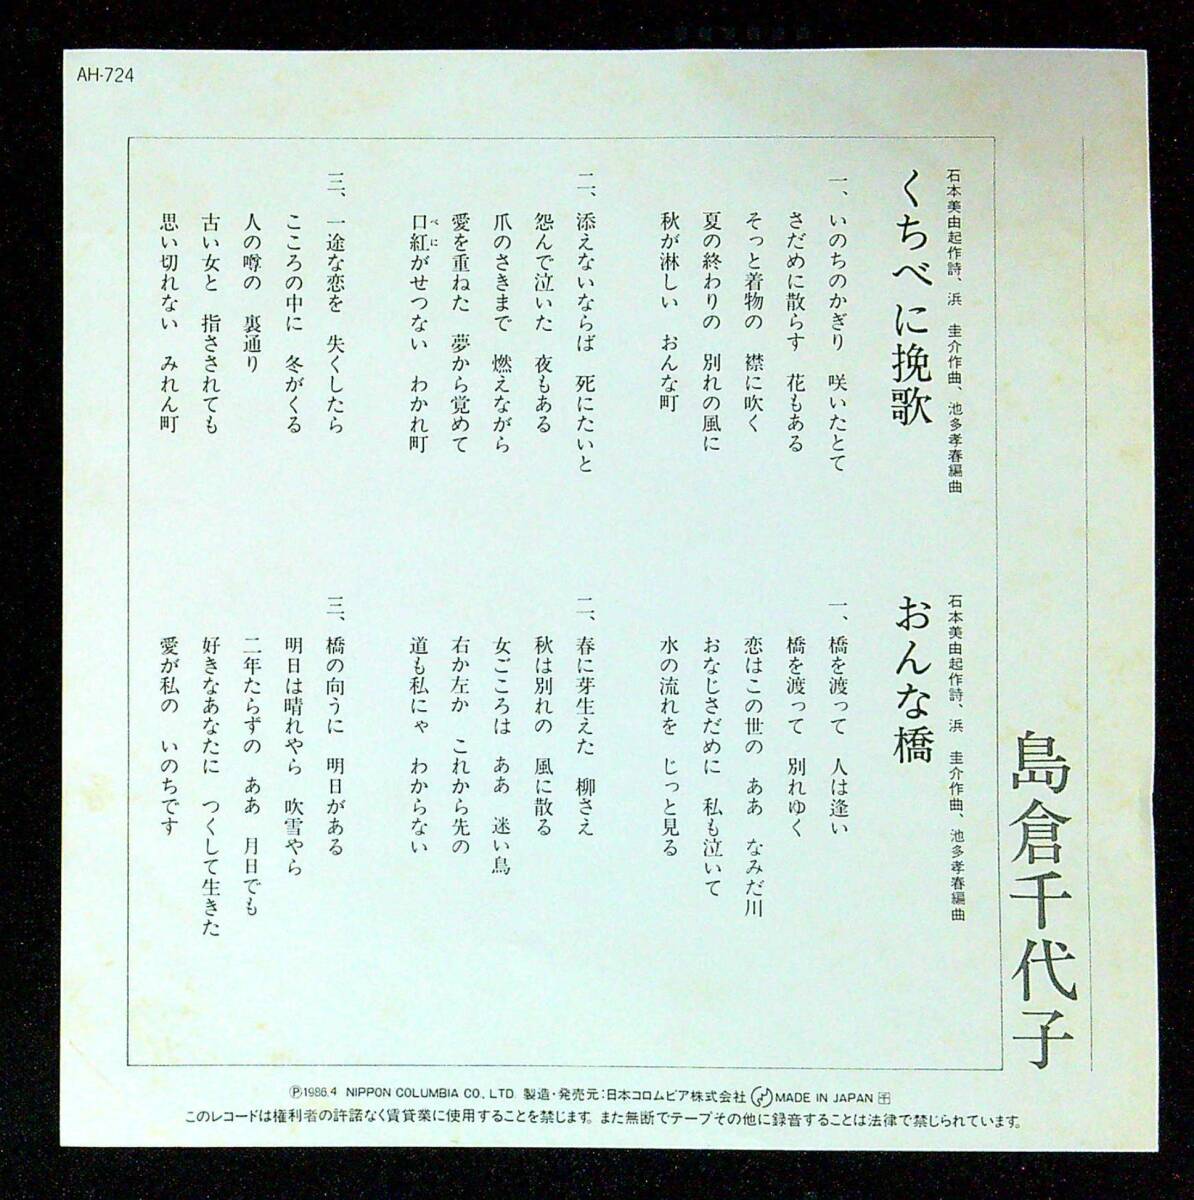 AH-724
島倉千代子
石本美由起作詩、浜 圭介作曲、池多孝春編曲
くちべに挽歌
一、いのちのかぎり 咲いたとて
さだめに散らす 花もある
そっと着物の 襟に吹く
夏の終わりの 別れの風に
秋が淋しい おんな町
二、添えないならば 死にたいと
怨んで泣いた 夜もある
爪のさきまで 燃えながら
愛を重ねた 夢から覚めて
口紅がせつない わかれ町
べに
三、一途な恋を 失くしたら
こころの中に 冬がくる
人の噂の 裏通り
古い女と 指さされても
思い切れない みれん町
石本美由起作詩、浜 圭介作曲、池多孝春編曲
おんな橋
一、橋を渡って 人は逢い
橋を渡って 別れゆく
恋はこの世の ああ なみだ川
おなじさだめに 私も泣いて
水の流れを じっと見る
二、春に芽生えた 柳さえ
秋は別れの 風に散る
女ごころは ああ 迷い鳥
右か左か これから先の
道も私にゃ わからない
三、橋の向うに 明日がある
明日は晴れやら 吹雪やら
二年たらずの ああ 月日でも
好きなあなたに つくして生きた
愛が私の いのちです
Ⓟ1986.4 NIPPON COLUMBIA CO., LTD. 製造・発売元:日本コロムビア株式会社 MADE IN JAPAN
このレコードは権利者の許諾なく賃貸業に使用することを禁じます。また無断でテープその他に録音することは法律で禁じられています。